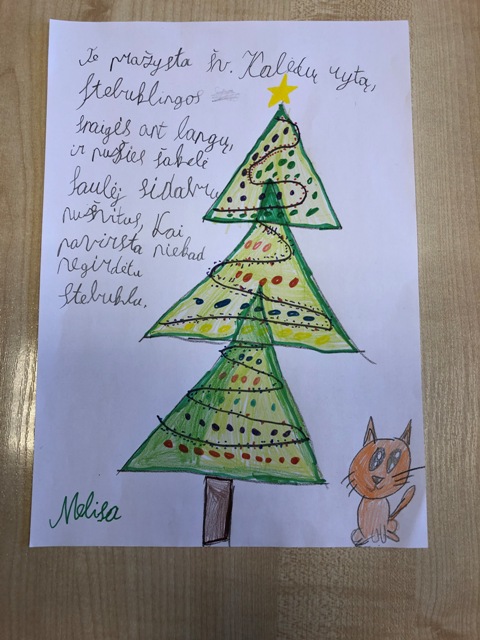 Te pražysta šv. Kalėdų rytą,
stebuklingos
snaigės ant langų,
ir pušies šakelė
saulėj sidabru
nušvitus, Kai
pavirsta niekad
negirdėtu
stebuklu.
Melisa